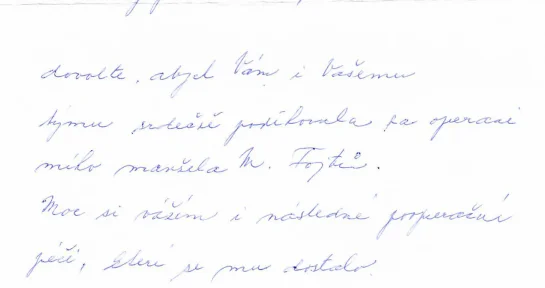 dovolte, abych Vám i Vašemu
týmu srdečně poděkovala za operaci
mého manžela M. Fojtů.
Moc si vážím i následné pooperační
péči, které se mu dostalo.